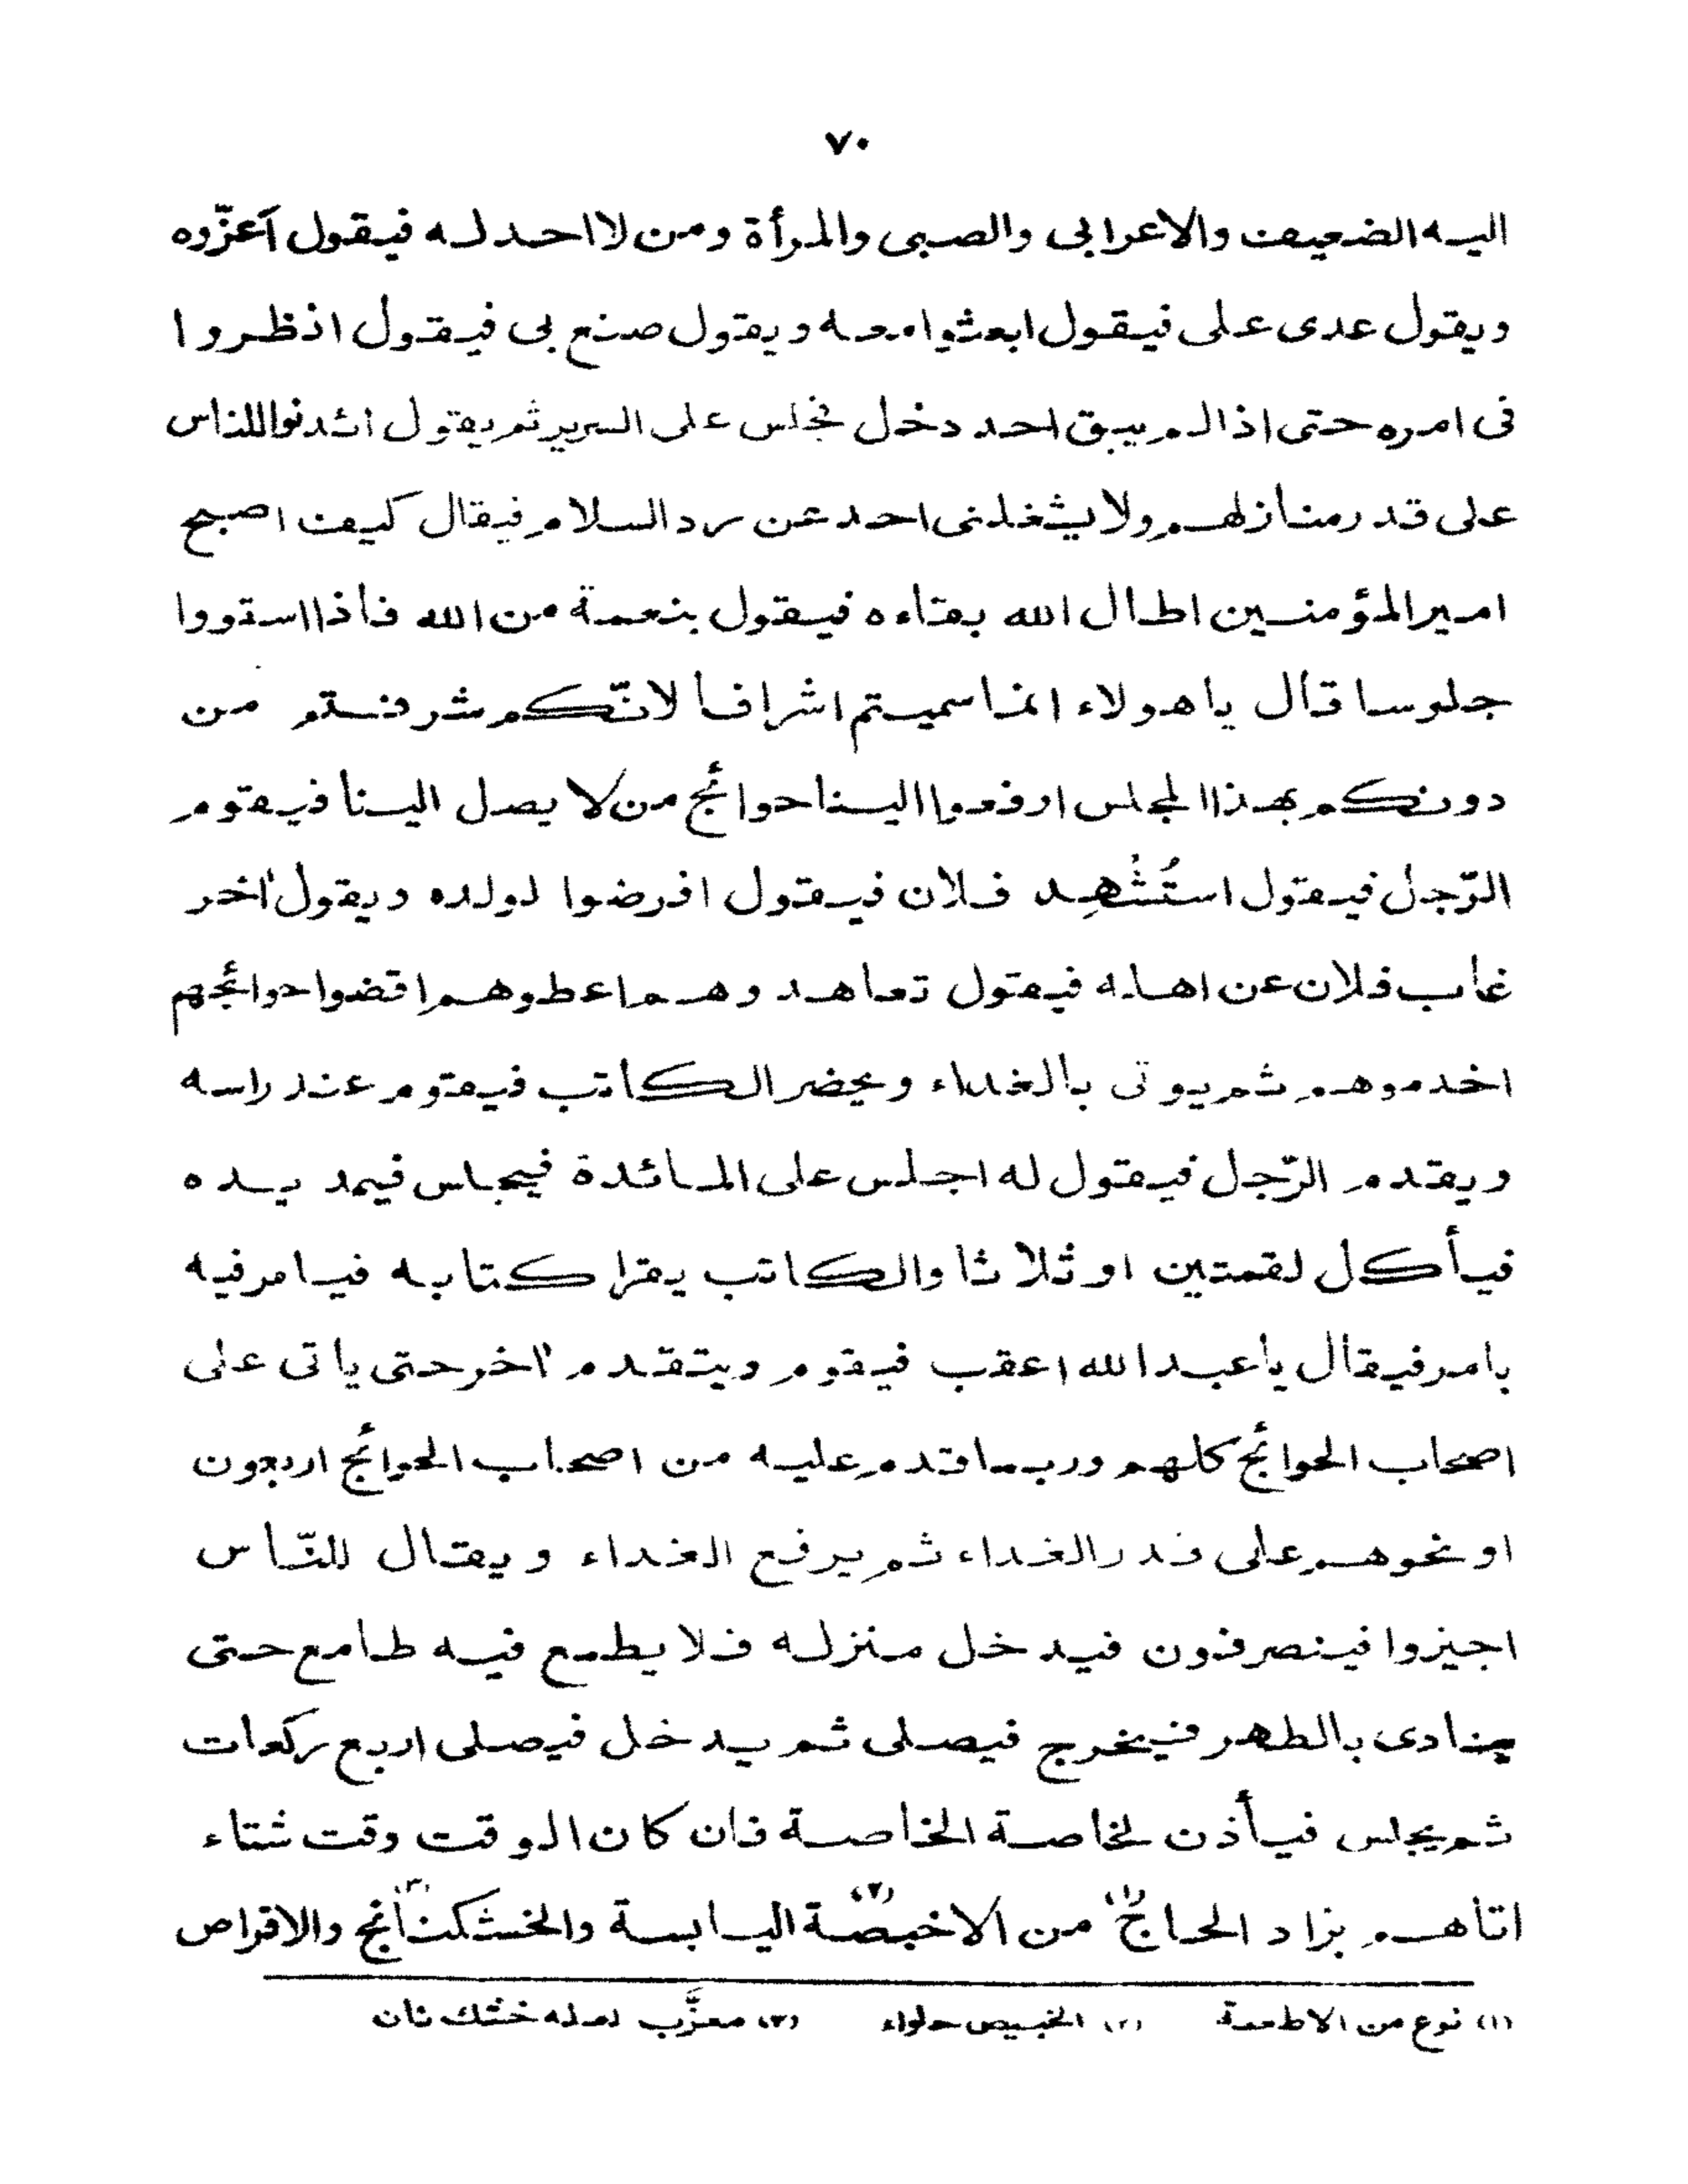 ٧٠
اليه الضعيف والاعرابى والصبى والمرأة ومن لا احد له فيقول آعزّوه
ويقول عدى على فيقول ابعثوا معه ويقول صنع بى فيقول انظروا
فى امره حتى اذا لم يبق احد دخل فجلس على السرير ثم يقول ائذنوا للناس
على قدر منازلهم ولا يشغلنى احد عن رد السلام فيقال كيف اصبح
امير المؤمنين اطال الله بقاءه فيقول بنعمة من الله فاذا استووا
جلوسا قال يا هولاء انما سميتم اشرافا لانّكم شرفتم من
دونكم بهذا المجلس ارفعوا الينا حوائج من لا يصل الينا فيقوم
الرّجل فيقول استُشْهِد فلان فيقول افرضوا لولده ويقول اٰخر
غاب فلان عن اهله فيقول تعاهدوهم اعطوهم اقضوا حوائجهم
اخدموهم ثم يوتى بالغداء ويحضر الكاتب فيقوم عند راسه
ويقدم الرّجل فيقول له اجلس على المائدة فيجلس فيمد يده
فيأكل لقمتين او ثلاثا والكاتب يقرا كتابه فيامر فيه
بامر فيقال يا عبد الله اعقب فيقوم ويتقدم اٰخر حتى ياتى على
اصحاب الحوائج كلهم وربما قدم عليه من اصحاب الحوائج اربعون
او نحوهم على قدر الغداء ثم يرفع الغداء ويقال للنّاس
اجيزوا فينصرفون فيدخل منزله فلا يطمع فيه طامع حتى
ينادى بالظهر فيخرج فيصلى ثم يدخل فيصلى اربع ركعات
ثم يجلس فيأذن لخاصة الخاصة فان كان الوقت وقت شتاء
اتاهم بزاد الحاج (١) من الاخبصة (٢) اليابسة والخشكنانج (٣) والاقراص
(١) نوع من الاطعمة (٢) الخبيص حلواء (٣) معرَّب اصله خشك نان